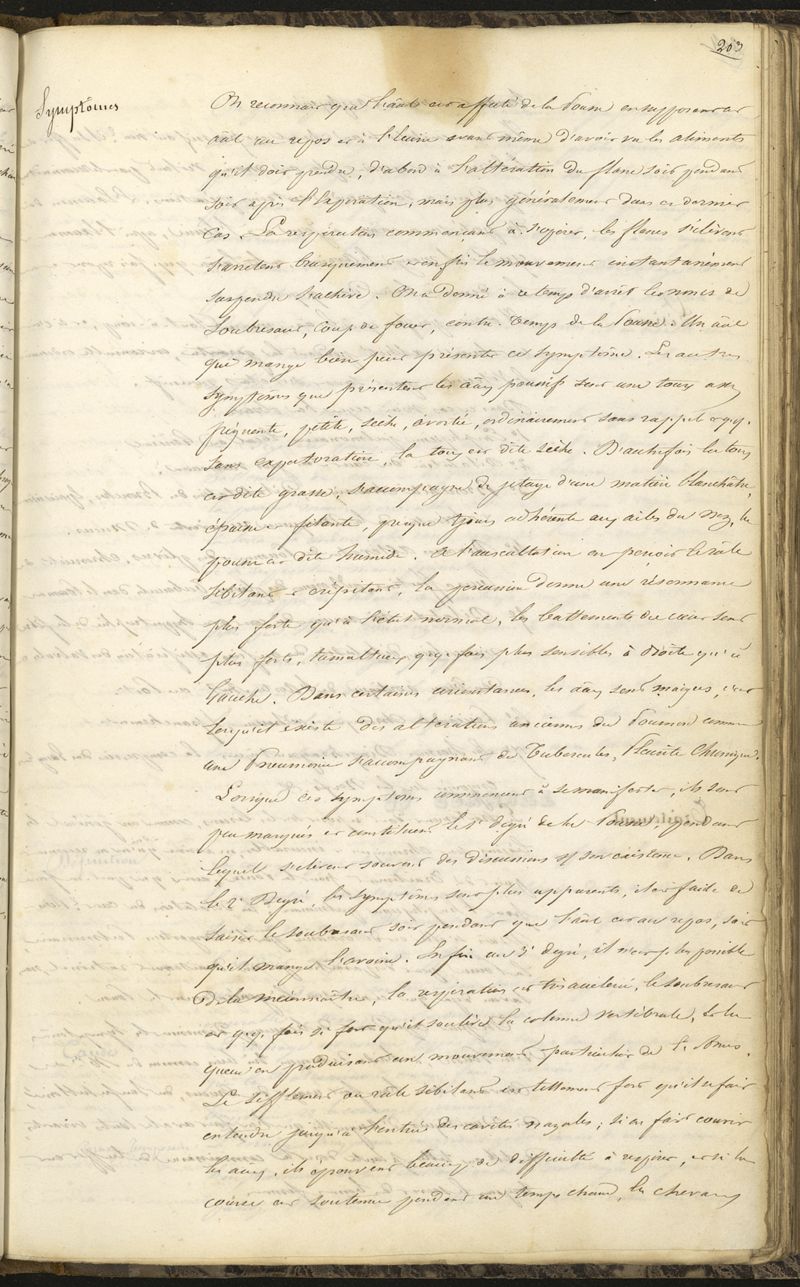 203
Symptômes
On reconnait que l'ânal est affecté de la Pousse en supposant cet
anal au repos et à l'écurie avant même d'avoir vu les aliments
qu'il doit prendre, d'abord à l'altération du flanc soit pendant
soit après l'Expiration, mais plus généralement dans ce dernier
Cas. La respiration commençant à s'opérer, les flancs s'élèvent
s'arretent brusquement et enfin le mouvement instantanément
suspendu s'achève. On a donné à ce temps d'arrêt les noms de
Soubresaut, Coup de fouet, contre-temps de la Pousse. Un ânl
qui mange bien peut présenter ce symptôme. Les autres
symptomes que présentent les âax poussifs sont une toux assez
fréquente, petite, sèche, avortée, ordinairement sans rappel et qq.
sans expectoration, la toux est dite sèche. D'autrefois la toux
est dite grasse, s'accompagne de jetage d'une matière blanchâtre,
épaisse et fétante, presque tjours adhérente aux ailes du nez, la
pousse est dite humide. A l'auscultation on perçoit le râle
sibilant et crépitant, la percussion donne une résonnance
plus forte qu'à l'état normal, les battements du cœur sont
plus forts, tumultueux, qq. fois plus sensibles à droite qu'à
Gauche. Dans certaines circonstances, les âax sont maigres, c'est
lorsqu'il existe des altérations anciennes du Poumon comme
une Pneumonie s'accompagnant de Tubercules, Pleurite Chronique.
Lorsque ces symptoms commencent à se manifester, ils sont
peu marqués et constituent le 1r degré de la Pousse, pendant
lequel s'élèvent souvent des discussions sr son existence. Dans
le 2e Degré, les symptômes sont plus apparents, il est facile de
saisir le soubresaut soit pendant que l'ânl est au repos, soit
qu'il mange l'avoine. Enfin au 3e degré, il n'est ps possible
de la méconnaître, la respiration est très accélérée, le soubresaut
est qq. fois si fort qu'il soulève la colonne vertébrale, et la
queue en produisant un mouvement particulier de l'Anus.
Le sifflement ou râle sibilant est tellement fort qu'il se fait
entendre jusqu'à l'entrée des cavités nazales; si on fait courir
les âax, ils éprouvent beaucp de difficulté à respirer, et si la
course est soutenue pendant un temps chaud, les chevaux